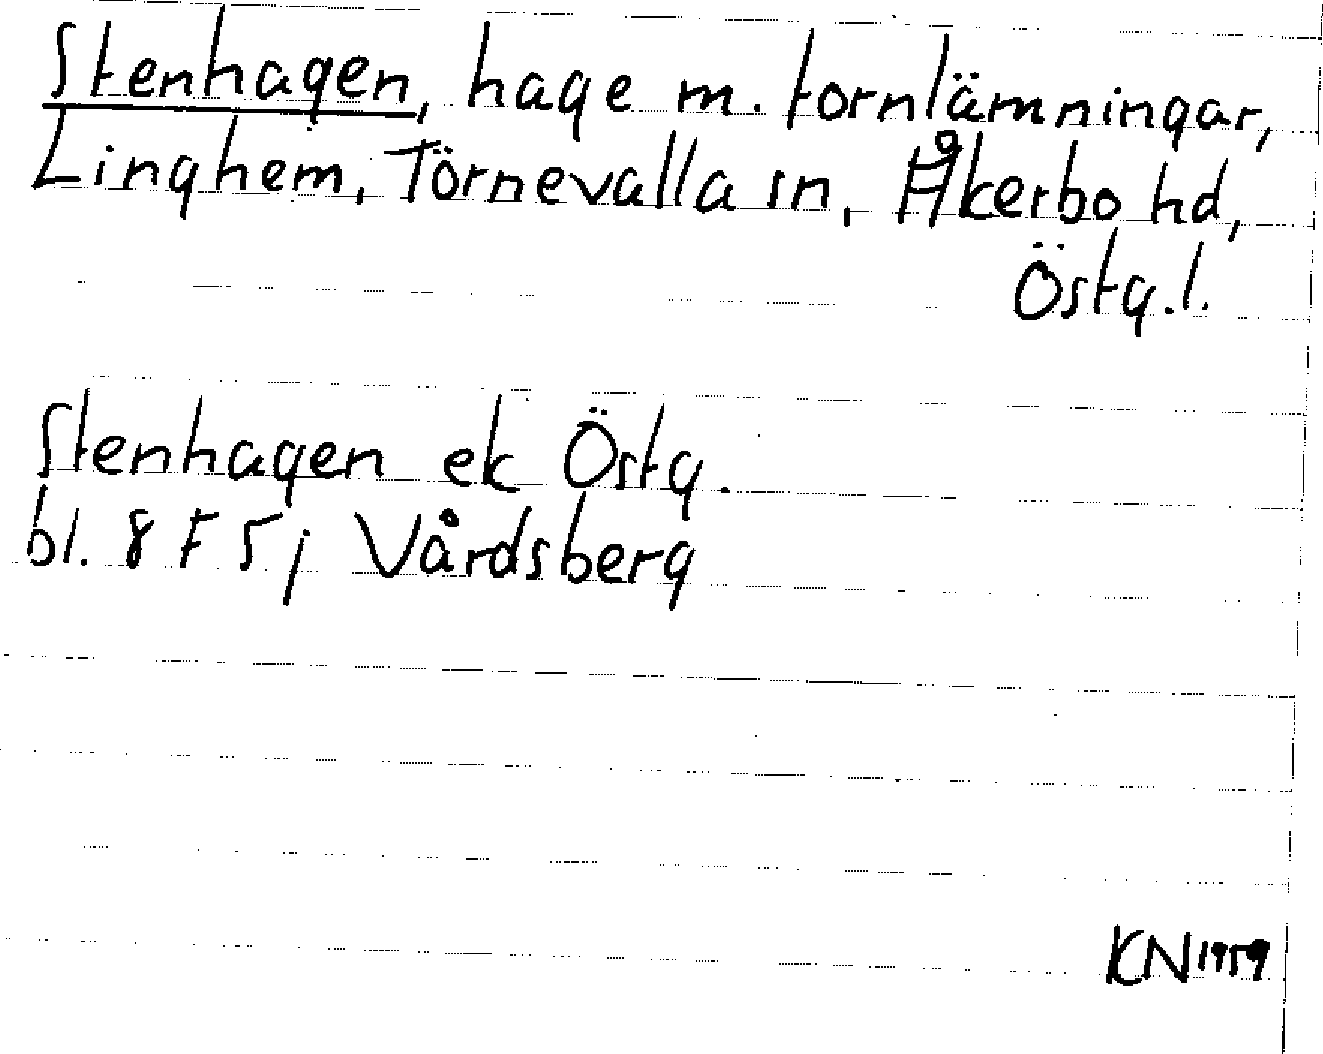 Stenhagen, hage m. fornlämningar,
Linghem, Törnevalla sn, Åkerbo hd,
Östg. l.
Stenhagen ek Östg.
bl. 8 F 5 j Vårdsberg
KN 1959